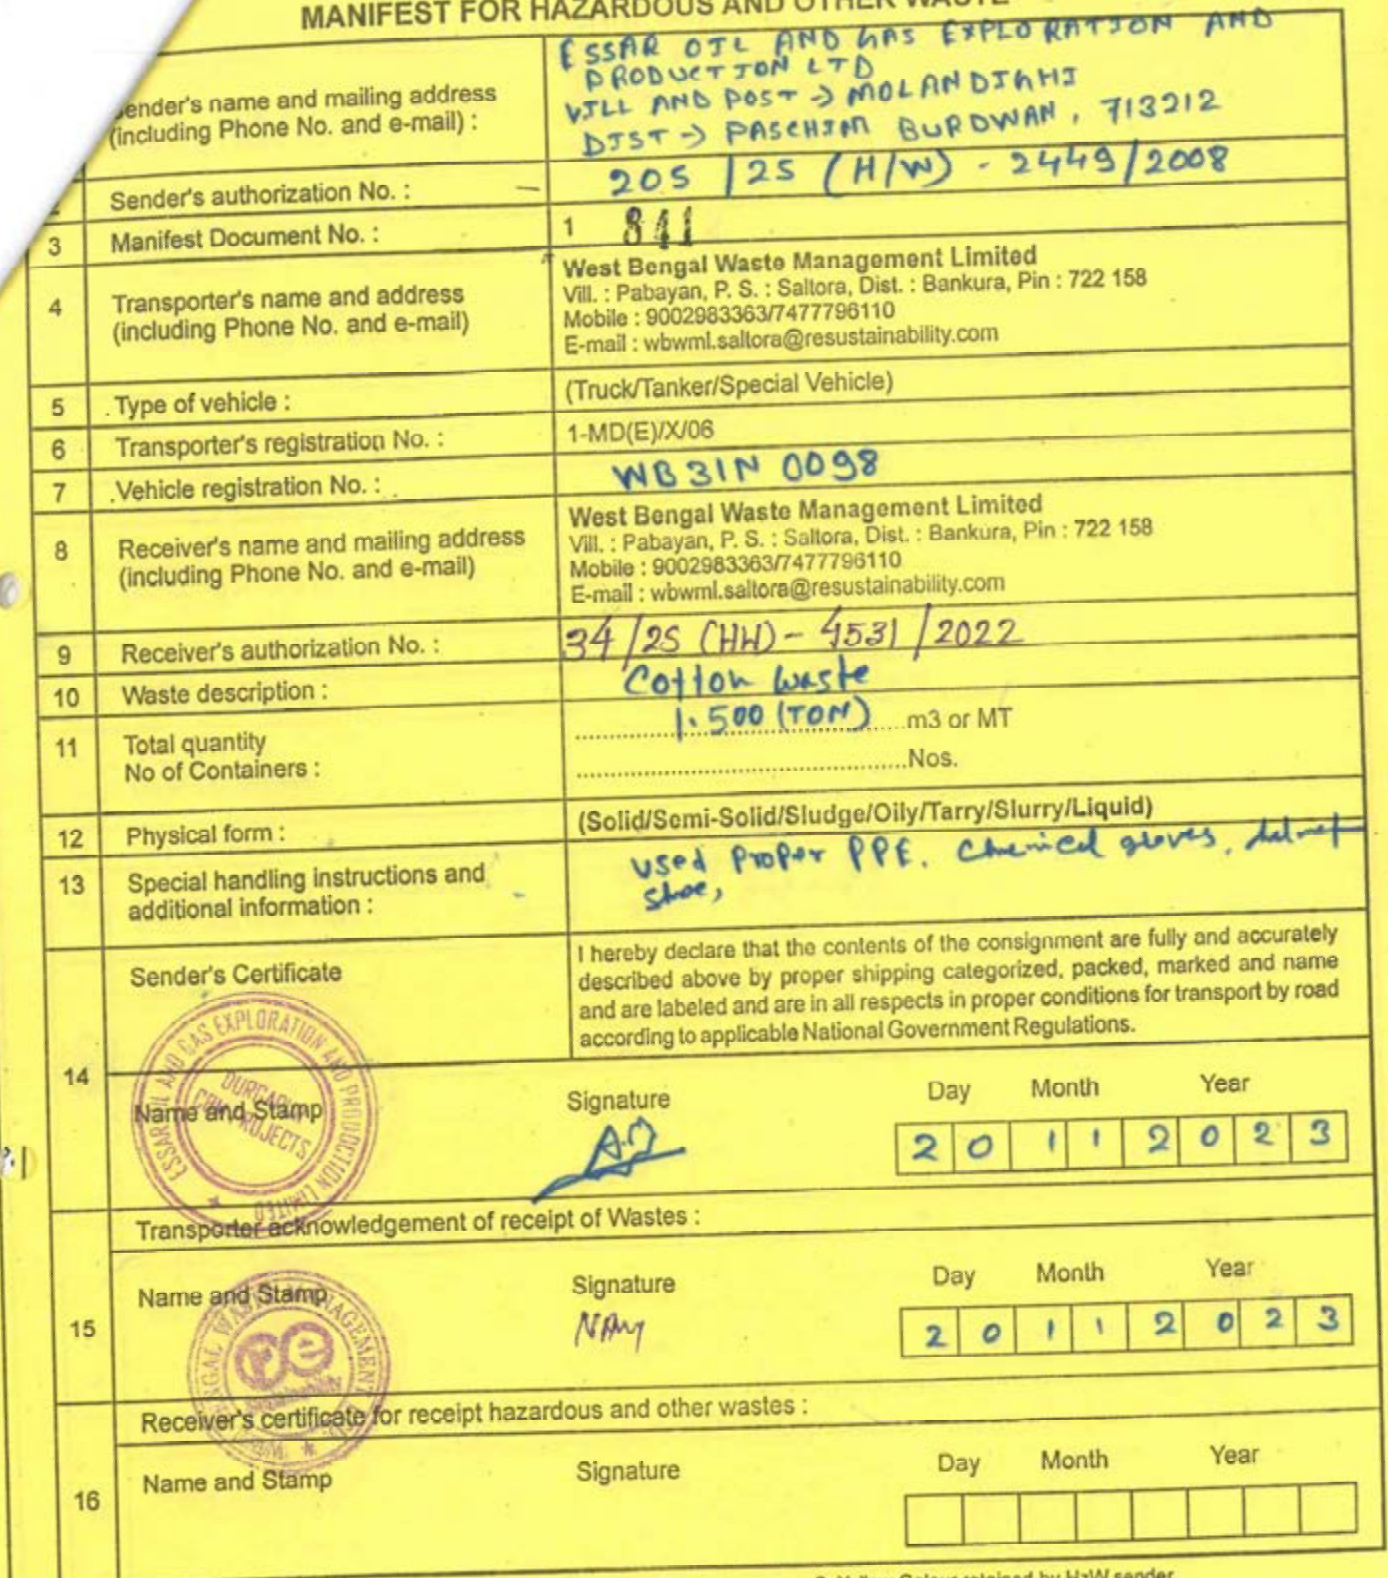 MANIFEST FOR HAZARDOUS AND OTHER WASTE
Sender's name and mailing address
(including Phone No. and e-mail) :
ESSAR OIL AND GAS EXPLORATION AND
PRODUCTION LTD
VILL AND POST → MOLANDIGHI
DIST → PASCHIM BURDWAN, 713212
2 Sender's authorization No. : 205 / 25 (H/W) - 2449/2008
3 Manifest Document No. : 1 841
4 Transporter's name and address
(including Phone No. and e-mail)
West Bengal Waste Management Limited
Vill. : Pabayan, P. S. : Saltora, Dist. : Bankura, Pin : 722 158
Mobile : 9002983363/7477796110
E-mail : wbwml.saltora@resustainability.com
5 Type of vehicle : (Truck/Tanker/Special Vehicle)
6 Transporter's registration No. : 1-MD(E)/X/06
7 Vehicle registration No. : WB31N 0098
8 Receiver's name and mailing address
(including Phone No. and e-mail)
West Bengal Waste Management Limited
Vill. : Pabayan, P. S. : Saltora, Dist. : Bankura, Pin : 722 158
Mobile : 9002983363/7477796110
E-mail : wbwml.saltora@resustainability.com
9 Receiver's authorization No. : 34/2S (HW) - 4531/2022
10 Waste description : Cotton waste
11 Total quantity 1.500 (TON) m3 or MT
No of Containers : Nos.
12 Physical form : (Solid/Semi-Solid/Sludge/Oily/Tarry/Slurry/Liquid)
13 Special handling instructions and
additional information :
used Proper PPE. Chemical gloves, helmet
shoe,
14 Sender's Certificate
I hereby declare that the contents of the consignment are fully and accurately
described above by proper shipping categorized, packed, marked and name
and are labeled and are in all respects in proper conditions for transport by road
according to applicable National Government Regulations.
ESSAR OIL AND GAS EXPLORATION AND PRODUCTION LIMITED
DURGAPUR
CBM PROJECTS
Name and Stamp Signature Day Month Year
2 0 1 1 2 0 2 3
15 Transporter acknowledgement of receipt of Wastes :
Name and Stamp Signature Day Month Year
2 0 1 1 2 0 2 3
16 Receiver's certificate for receipt hazardous and other wastes :
Name and Stamp Signature Day Month Year